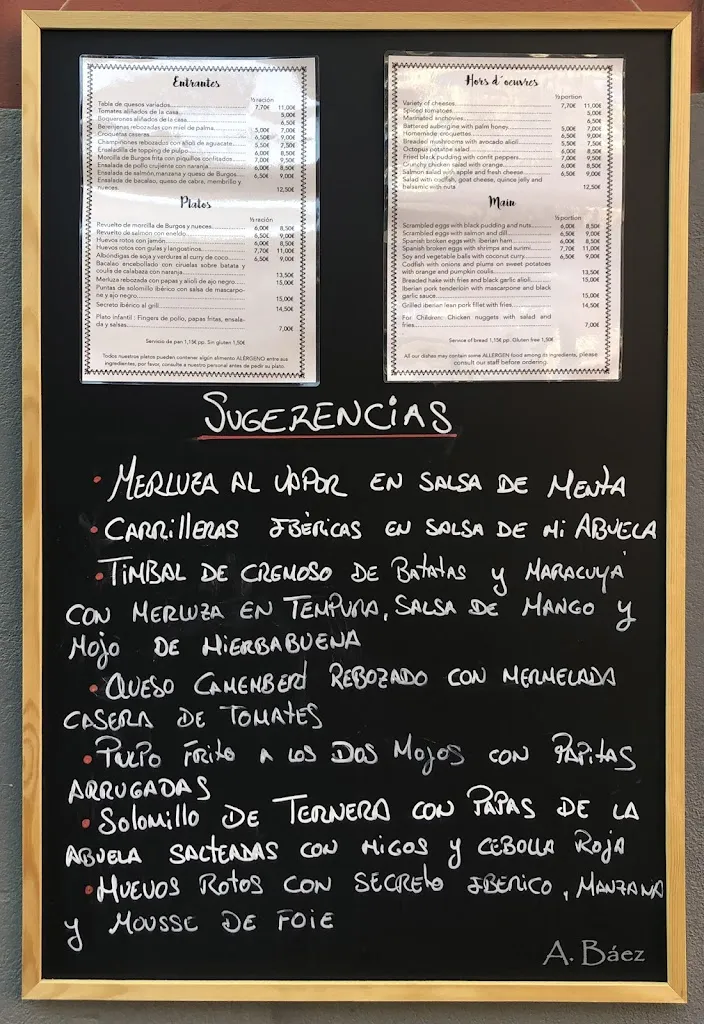 Entrantes
½ ración
Tabla de quesos variados 7,70€ 11,00€
Tomates aliñados de la casa 5,00€
Boquerones aliñados de la casa 6,50€
Berenjenas rebozadas con miel de palma 5,00€ 7,00€
Croquetas caseras 6,50€ 9,00€
Champiñones rebozados con alioli de aguacate 5,50€ 7,50€
Ensaladilla de topping de pulpo 6,00€ 8,50€
Morcilla de Burgos frita con piquillos confitados 7,00€ 9,50€
Ensalada de pollo crujiente con naranja 6,00€ 8,50€
Ensalada de salmón,manzana y queso de Burgos 6,50€ 9,00€
Ensalada de bacalao, queso de cabra, membrillo y
nueces 12,50€
Platos
½ ración
Revuelto de morcilla de Burgos y nueces 6,00€ 8,50€
Revuelto de salmón con eneldo 6,50€ 9,00€
Huevos rotos con jamón 6,00€ 8,50€
Huevos rotos con gulas y langostinos 7,70€ 11,00€
Albóndigas de soja y verduras al curry de coco 6,50€ 9,00€
Bacalao encebollado con ciruelas sobre batata y
coulis de calabaza con naranja 13,50€
Merluza rebozada con papas y alioli de ajo negro 15,00€
Puntas de solomillo ibérico con salsa de mascarpo-
ne y ajo negro 15,00€
Secreto ibérico al grill 14,50€
Plato infantil : Fingers de pollo, papas fritas, ensala-
da y salsas 7,00€
Servicio de pan 1,15€ pp. Sin gluten 1,50€
Todos nuestros platos pueden contener algún alimento ALÉRGENO entre sus
ingredientes, por favor, consulte a nuestro personal antes de pedir su plato.
Hors d´oeuvres
½ portion
Variety of cheeses 7,70€ 11,00€
Spiced tomatoes 5,00€
Marinated anchovies 6,50€
Battered aubergine with palm honey 5,00€ 7,00€
Homemade croquettes 6,50€ 9,00€
Breaded mushrooms with avocado alioli 5,50€ 7,50€
Octopus potato salad 6,00€ 8,50€
Fried black pudding with confit peppers 7,00€ 9,50€
Crunchy chicken salad with orange 6,00€ 8,50€
Salmon salad with apple and fresh cheese 6,50€ 9,00€
Salad with codfish, goat cheese, quince jelly and
balsamic with nuts 12,50€
Main
½ portion
Scrambled eggs with black pudding and nuts 6,00€ 8,50€
Scrambled eggs with salmon and dill 6,50€ 9,00€
Spanish broken eggs with iberian ham 6,00€ 8,50€
Spanish broken eggs with shrimps and surimi 7,70€ 11,00€
Soy and vegetable balls with coconut curry 6,50€ 9,00€
Codfish with onions and plums on sweet potatoes
with orange and pumpkin coulis 13,50€
Breaded hake with fries and black garlic alioli 15,00€
Iberian pork tenderloin with mascarpone and black
garlic sauce 15,00€
Grilled iberian lean pork fillet with fries 14,50€
For Children: Chicken nuggets with salad and
fries 7,00€
Service of bread 1,15€ pp. Gluten free 1,50€
All our dishes may contain some ALLERGEN food among its ingredients, please
consult our staff before ordering.
SUGERENCIAS
• MERLUZA AL VAPOR EN SALSA DE MENTA
• CARRILLERAS IBÉRICAS EN SALSA DE MI ABUELA
• TIMBAL DE CREMOSO DE BATATAS Y MARACUYÁ
CON MERLUZA EN TEMPURA, SALSA DE MANGO Y
MOJO DE HIERBABUENA
• QUESO CAMEMBERT REBOZADO CON MERMELADA
CASERA DE TOMATES
• PULPO FRITO A LOS DOS MOJOS CON PAPITAS
ARRUGADAS
• SOLOMILLO DE TERNERA CON PAPAS DE LA
ABUELA SALTEADAS CON HIGOS Y CEBOLLA ROJA
• HUEVOS ROTOS CON SECRETO IBERICO, MANZANA
Y MOUSSE DE FOIE
A. Báez